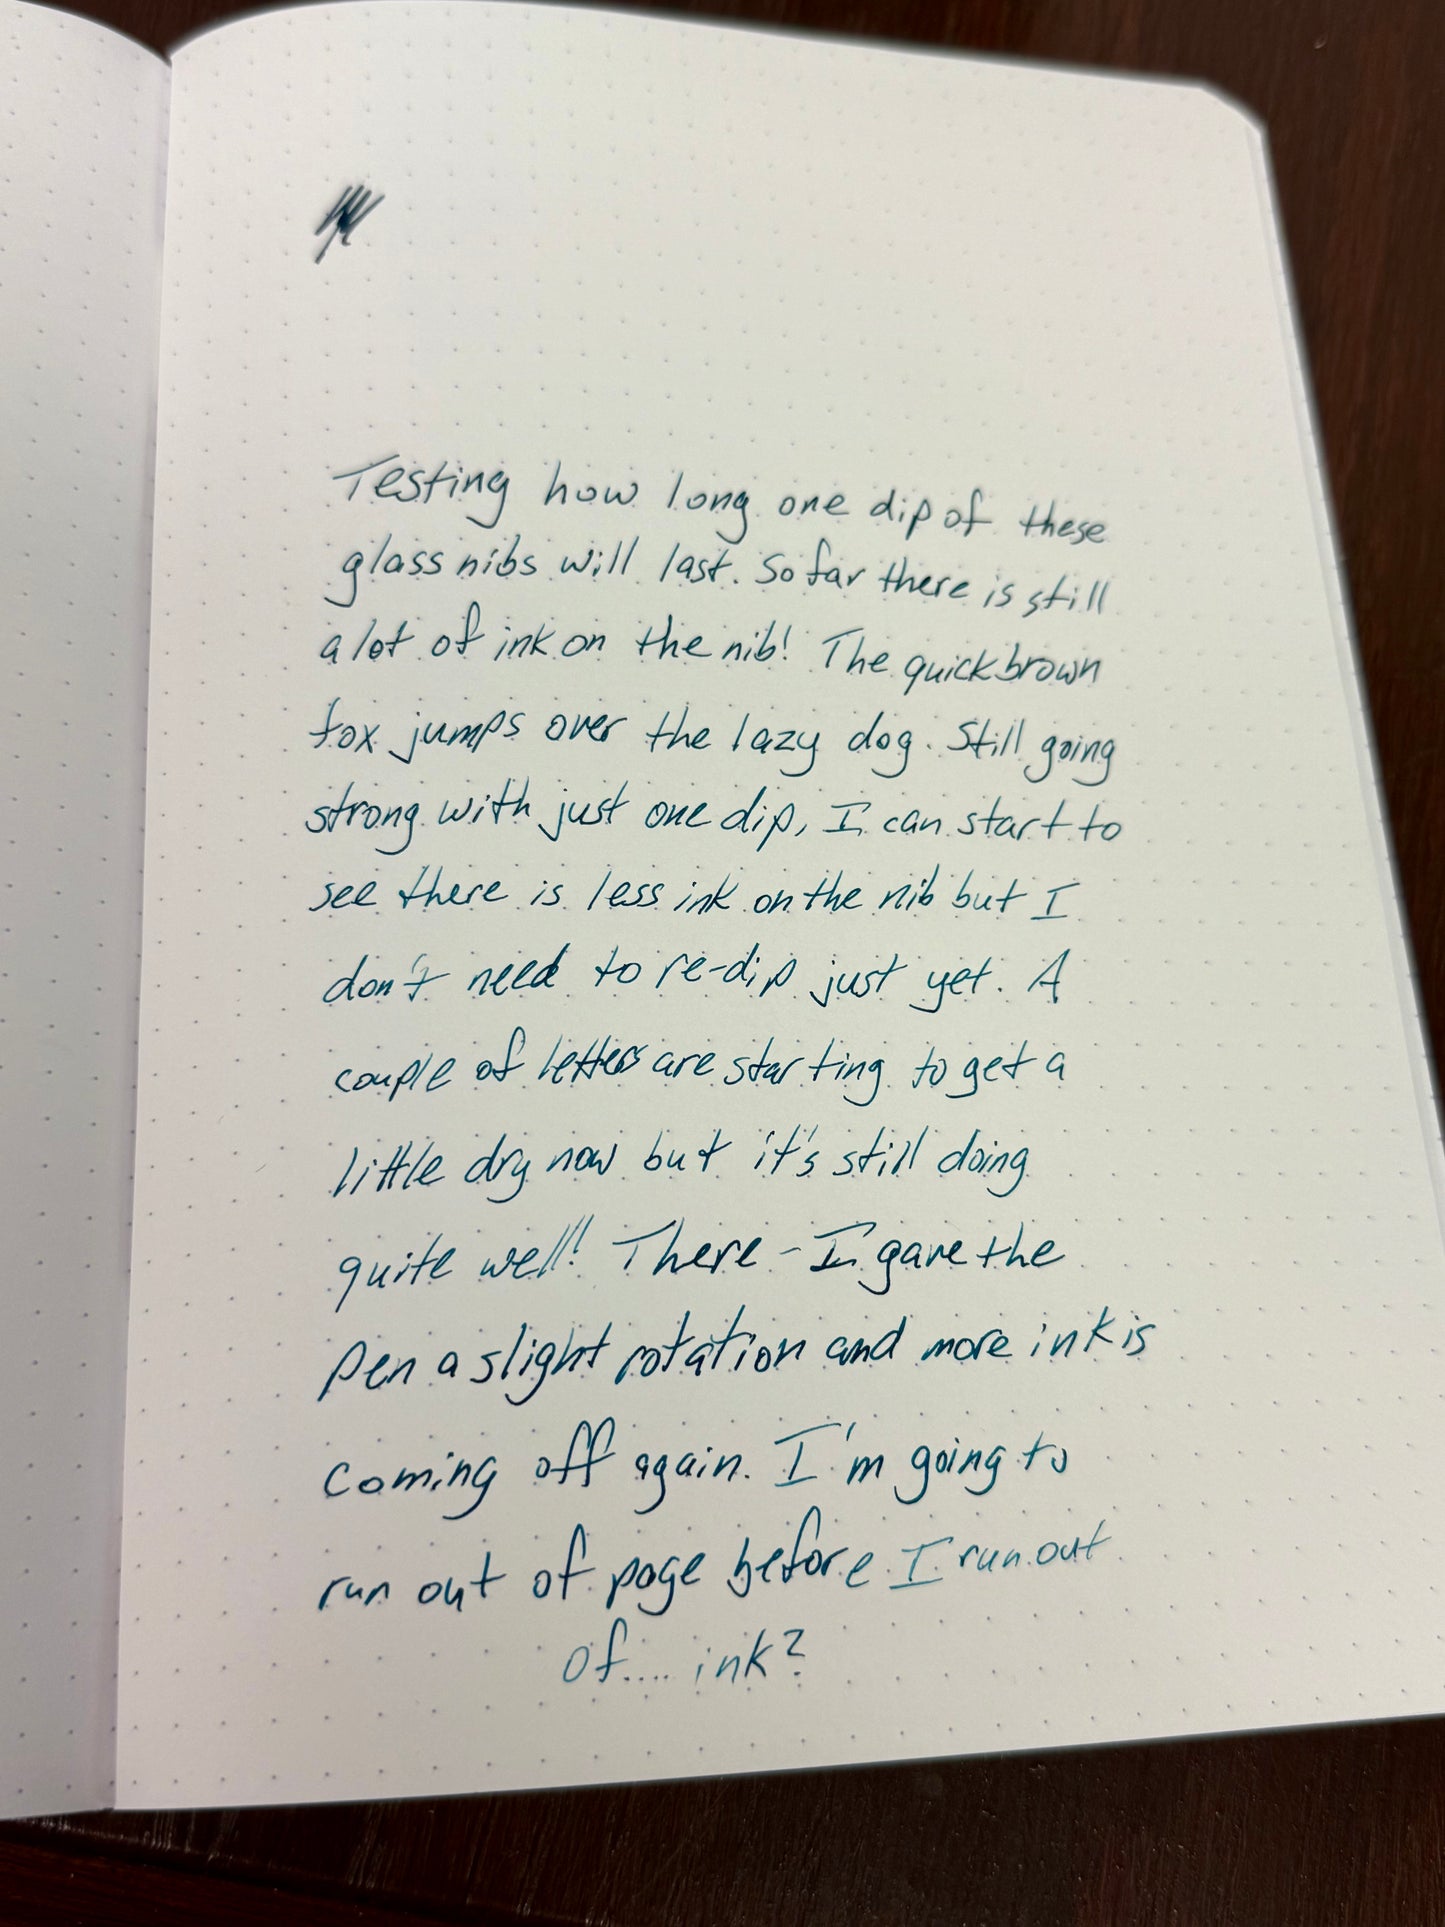 Testing how long one dip of these
glass nibs will last. So far there is still
a lot of ink on the nib! The quick brown
fox jumps over the lazy dog. Still going
strong with just one dip, I can start to
see there is less ink on the nib but I
don't need to re-dip just yet. A
couple of letters are starting to get a
little dry now but it's still doing
quite well! There - I gave the
pen a slight rotation and more ink is
coming off again. I'm going to
run out of page before I run out
of.... ink?